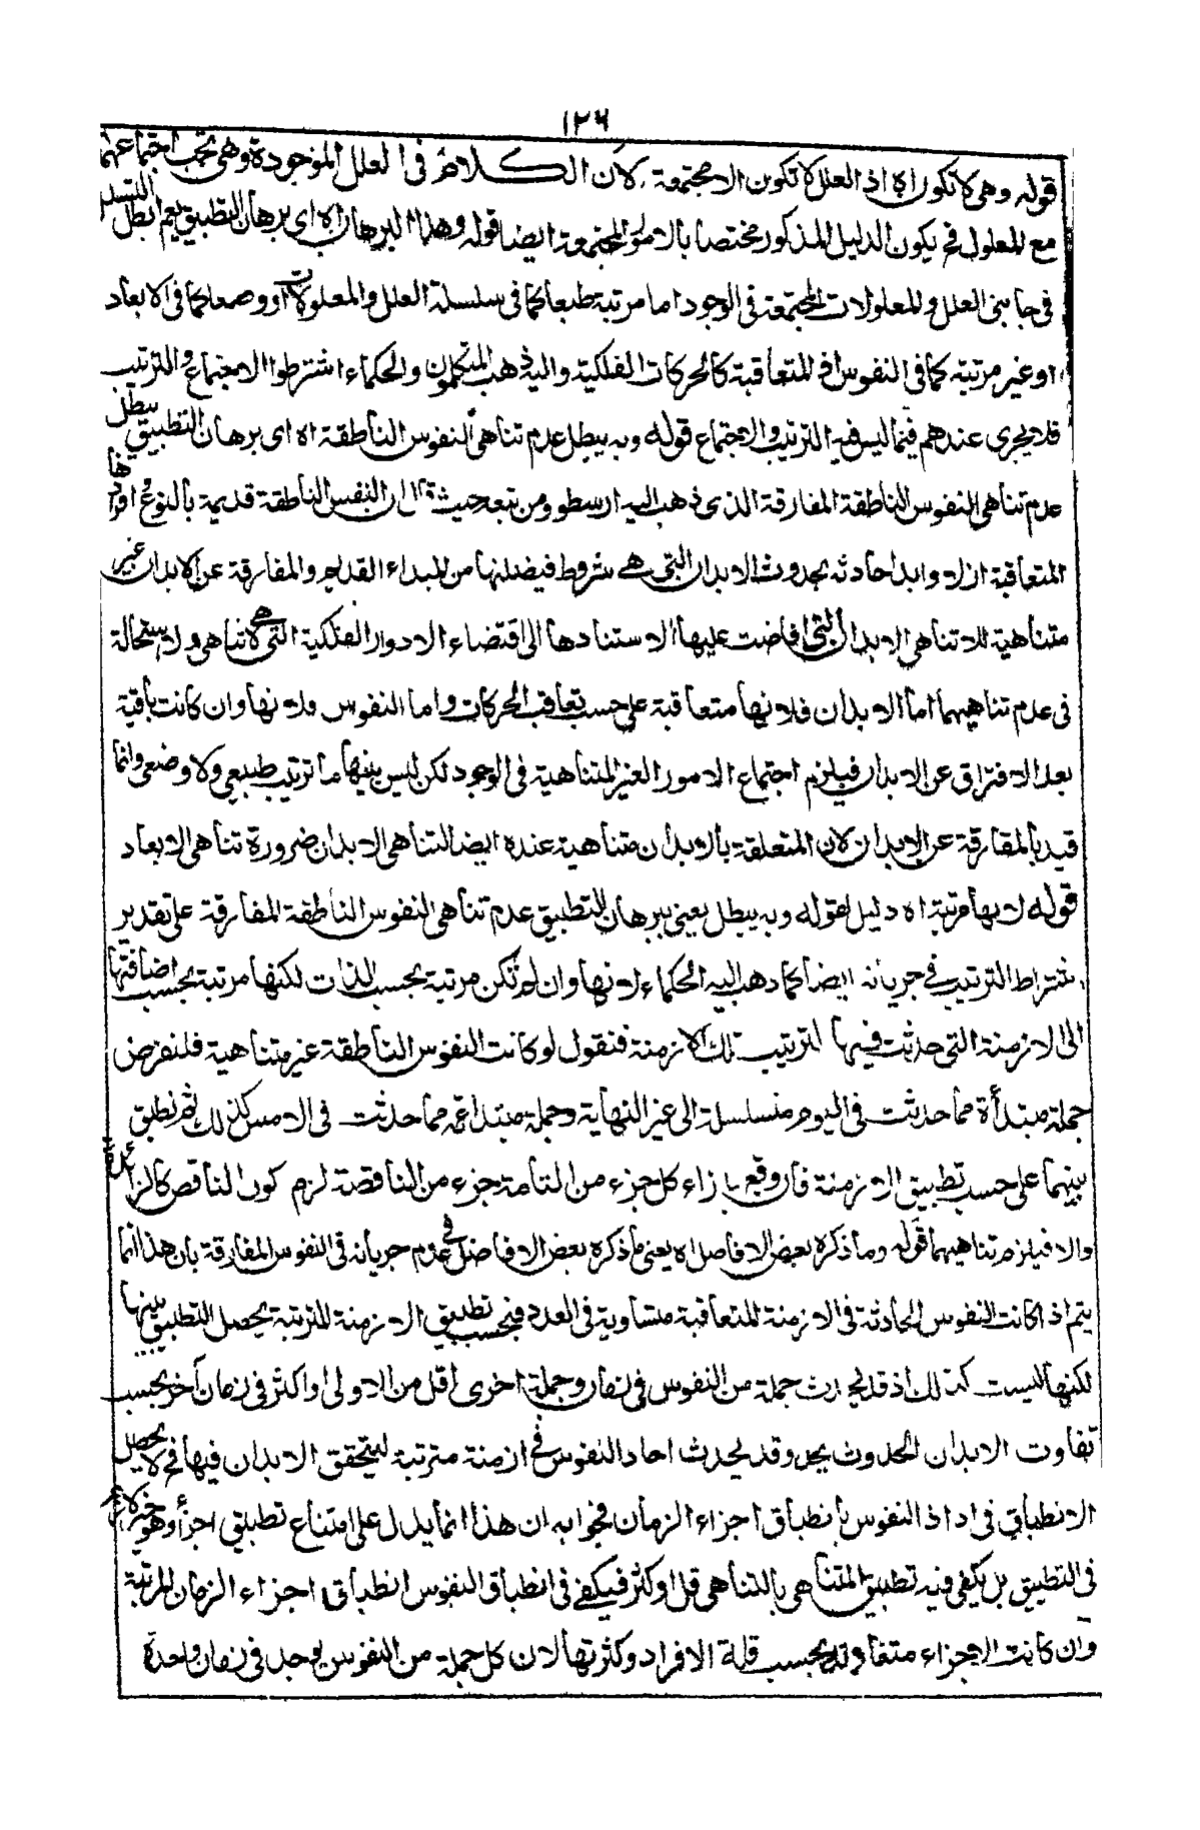 ١٢٦
قوله وهى لا تكون اه اذ العلل لا تكون الا مجتمعة لان الكلام فى العلل الموجودة وهى يجب اجتماعها
مع المعلول فح يكون الدليل المذكور مختصا بالامور المجتمعة ايضا قوله وهذا البرهان اه اى برهان التطبيق يعم ابطال التسلسل
فى جانبى العلل والمعلولات المجتمعة فى الوجود اما مرتبة طبعا كما فى سلسلة العلل والمعلولات او وضعا كما فى الابعاد
او غير مرتبة كما فى النفوس او المتعاقبة كالحركات الفلكية واليه ذهب المتكلمون والحكماء اشترطوا الاجتماع والترتيب
فلا يجرى عندهم فيما ليس فيه الترتيب والاجتماع قوله وبه يبطل عدم تناهى النفوس الناطقة اه اى برهان التطبيق يبطل
عدم تناهى النفوس الناطقة المفارقة الذى ذهب اليه ارسطو ومن تبعه حيث قالوا ان النفس الناطقة قديمة بالنوع وافرادها
المتعاقبة ازلا وابدا حادثه بحدوث الابدان التى هى شروط فيضانها من المبداء القديم والمفارقة عن الابدان غير
متناهية للاتناهى الابدان التى افاضت عليها الاستنادها الى اقتضاء الادوار الفلكية التى هى لا تناهى ولا استحالة
فى عدم تناهيهما اما الابدان فلانها متعاقبة على حسب تعاقب الحركات واما النفوس فلانها وان كانت باقية
بعد الافتراق عن الابدان فيلزم اجتماع الامور الغير المتناهية فى الوجود لكن ليس بينها ما ترتيب طبيعى ولا وضعى وانما
قيد بالمفارقة عن الابدان لان المتعلقة بالابدان متناهية عنده ايضا لتناهى الابدان ضرورة تناهى الابعاد
قوله لانها مرتبة اه دليل لقوله وبه يبطل يعنى ببرهان التطبيق عدم تناهى النفوس الناطقة المفارقة على تقدير
اشتراط الترتيب فى جريانه ايضا كما ذهب اليه الحكماء لانها وان لم تكن مرتبة بحسب الذات لكنها مرتبة بحسب اضافتها
الى الازمنة التى حدثت فيها لترتيب تلك الازمنة فنقول لو كانت النفوس الناطقة غير متناهية فلنفرض
جملة مبتدأة مما حدثت فى اليوم متسلسلة الى غير النهاية وجملة مبتداة مما حدثت فى الامس كذلك ثم نطبق
بينهما على حسب تطبيق الازمنة فان وقع بازاء كل جزء من التامة جزء من الناقصة لزم كون الناقص كالزائد
والا فيلزم تناهيهما قوله وما ذكره بعض الافاضل اه يعنى ما ذكره بعض الافاضل فى عدم جريانه فى النفوس المفارقة بان هذا انما
يتم اذا كانت النفوس الحادثة فى الازمنة المتعاقبة متساوية فى العدد فبحسب تطبيق الازمنة المترتبة يحصل التطبيق بينها
لكنها ليست كذلك اذ قد يحدث جملة من النفوس فى زمان وجملة اخرى اقل من الاولى او اكثر فى زمان آخر بحسب
تفاوت الابدان الحدوث وقد يحدث احاد النفوس فى ازمنة مترتبة ليتحقق الابدان فيها فح لا يحصل
الانطباق فى اداد النفوس بانطباق اجزاء الزمان فجوابه ان هذا انما يدل على امتناع تطبيق اجزاء وهو غير لازم
فى التطبيق بل يكفى فيه تطبيق المتناهى بالمتناهى قل او كثر فيكفى فى انطباق النفوس انطباق اجزاء الزمان المرتبة
وان كانت الاجزاء متفاوتة بحسب قلة الافراد وكثرتها لان كل جملة من النفوس يوجد فى زمان واحدة